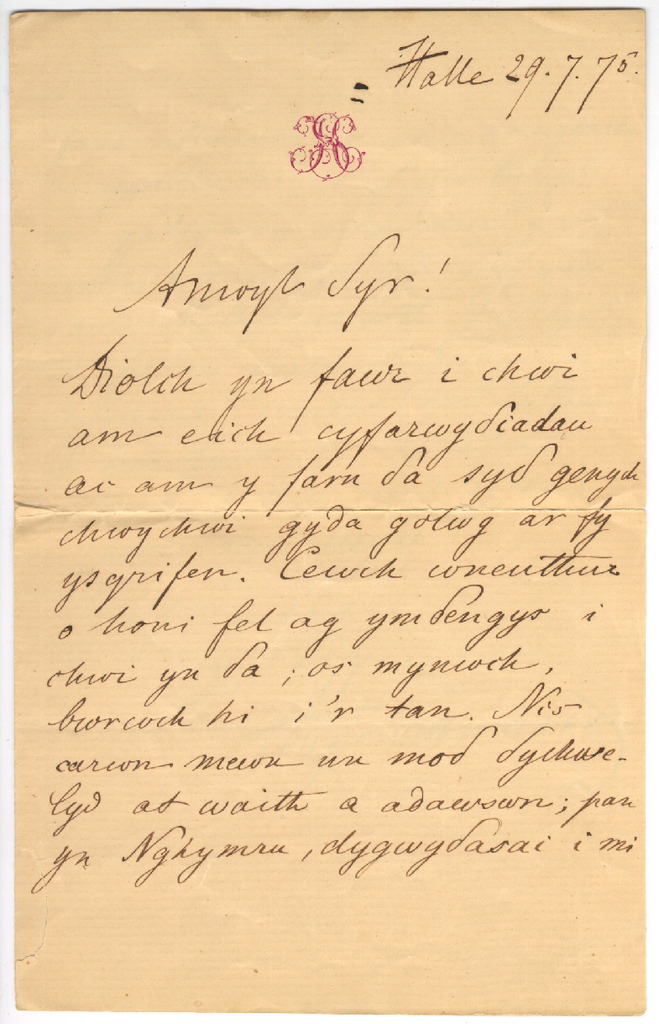 Halle 29.7.75.
Anwyl Syr!
Diolch yn fawr i chwi
am eich cyfarwyδiadau
ac am y farn δa syδ genych
chwychwi gyda golwg ar fy
ysgrifen. Cewch wneuthur
o honi fel ag ymδengys i
chwi yn δa; os mynwch,
bwrwch hi i'r tan. Nis
carwn mewn un moδ dychwe-
lyd at waith a adawswn; pan
yn Nghymru, dygwyδasai i mi